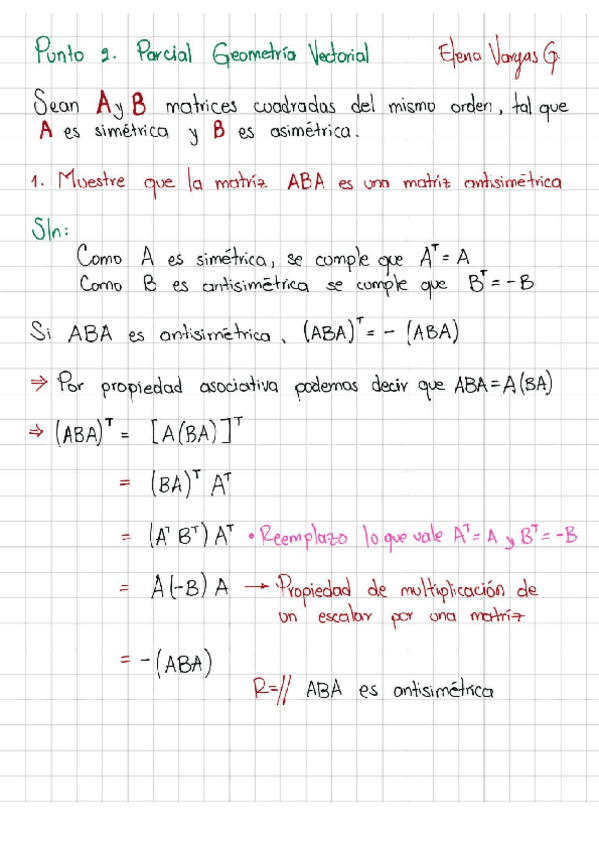 Punto 2. Parcial Geometría Vectorial Elena Vargas G.
Sean A y B matrices cuadradas del mismo orden, tal que
A es simétrica y B es asimétrica.
1. Muestre que la matríz ABA es una matríz antisimétrica
Sln:
Como A es simétrica, se cumple que Aᵀ = A
Como B es antisimétrica se cumple que Bᵀ = -B
Si ABA es antisimétrica, (ABA)ᵀ = - (ABA)
⇒ Por propiedad asociativa podemos decir que ABA = A(BA)
⇒ (ABA)ᵀ = [A(BA)]ᵀ
= (BA)ᵀ Aᵀ
= (Aᵀ Bᵀ) Aᵀ • Reemplazo lo que vale Aᵀ = A y Bᵀ = -B
= A(-B) A → Propiedad de multiplicación de
un escalar por una matríz
= - (ABA)
R=// ABA es antisimétrica